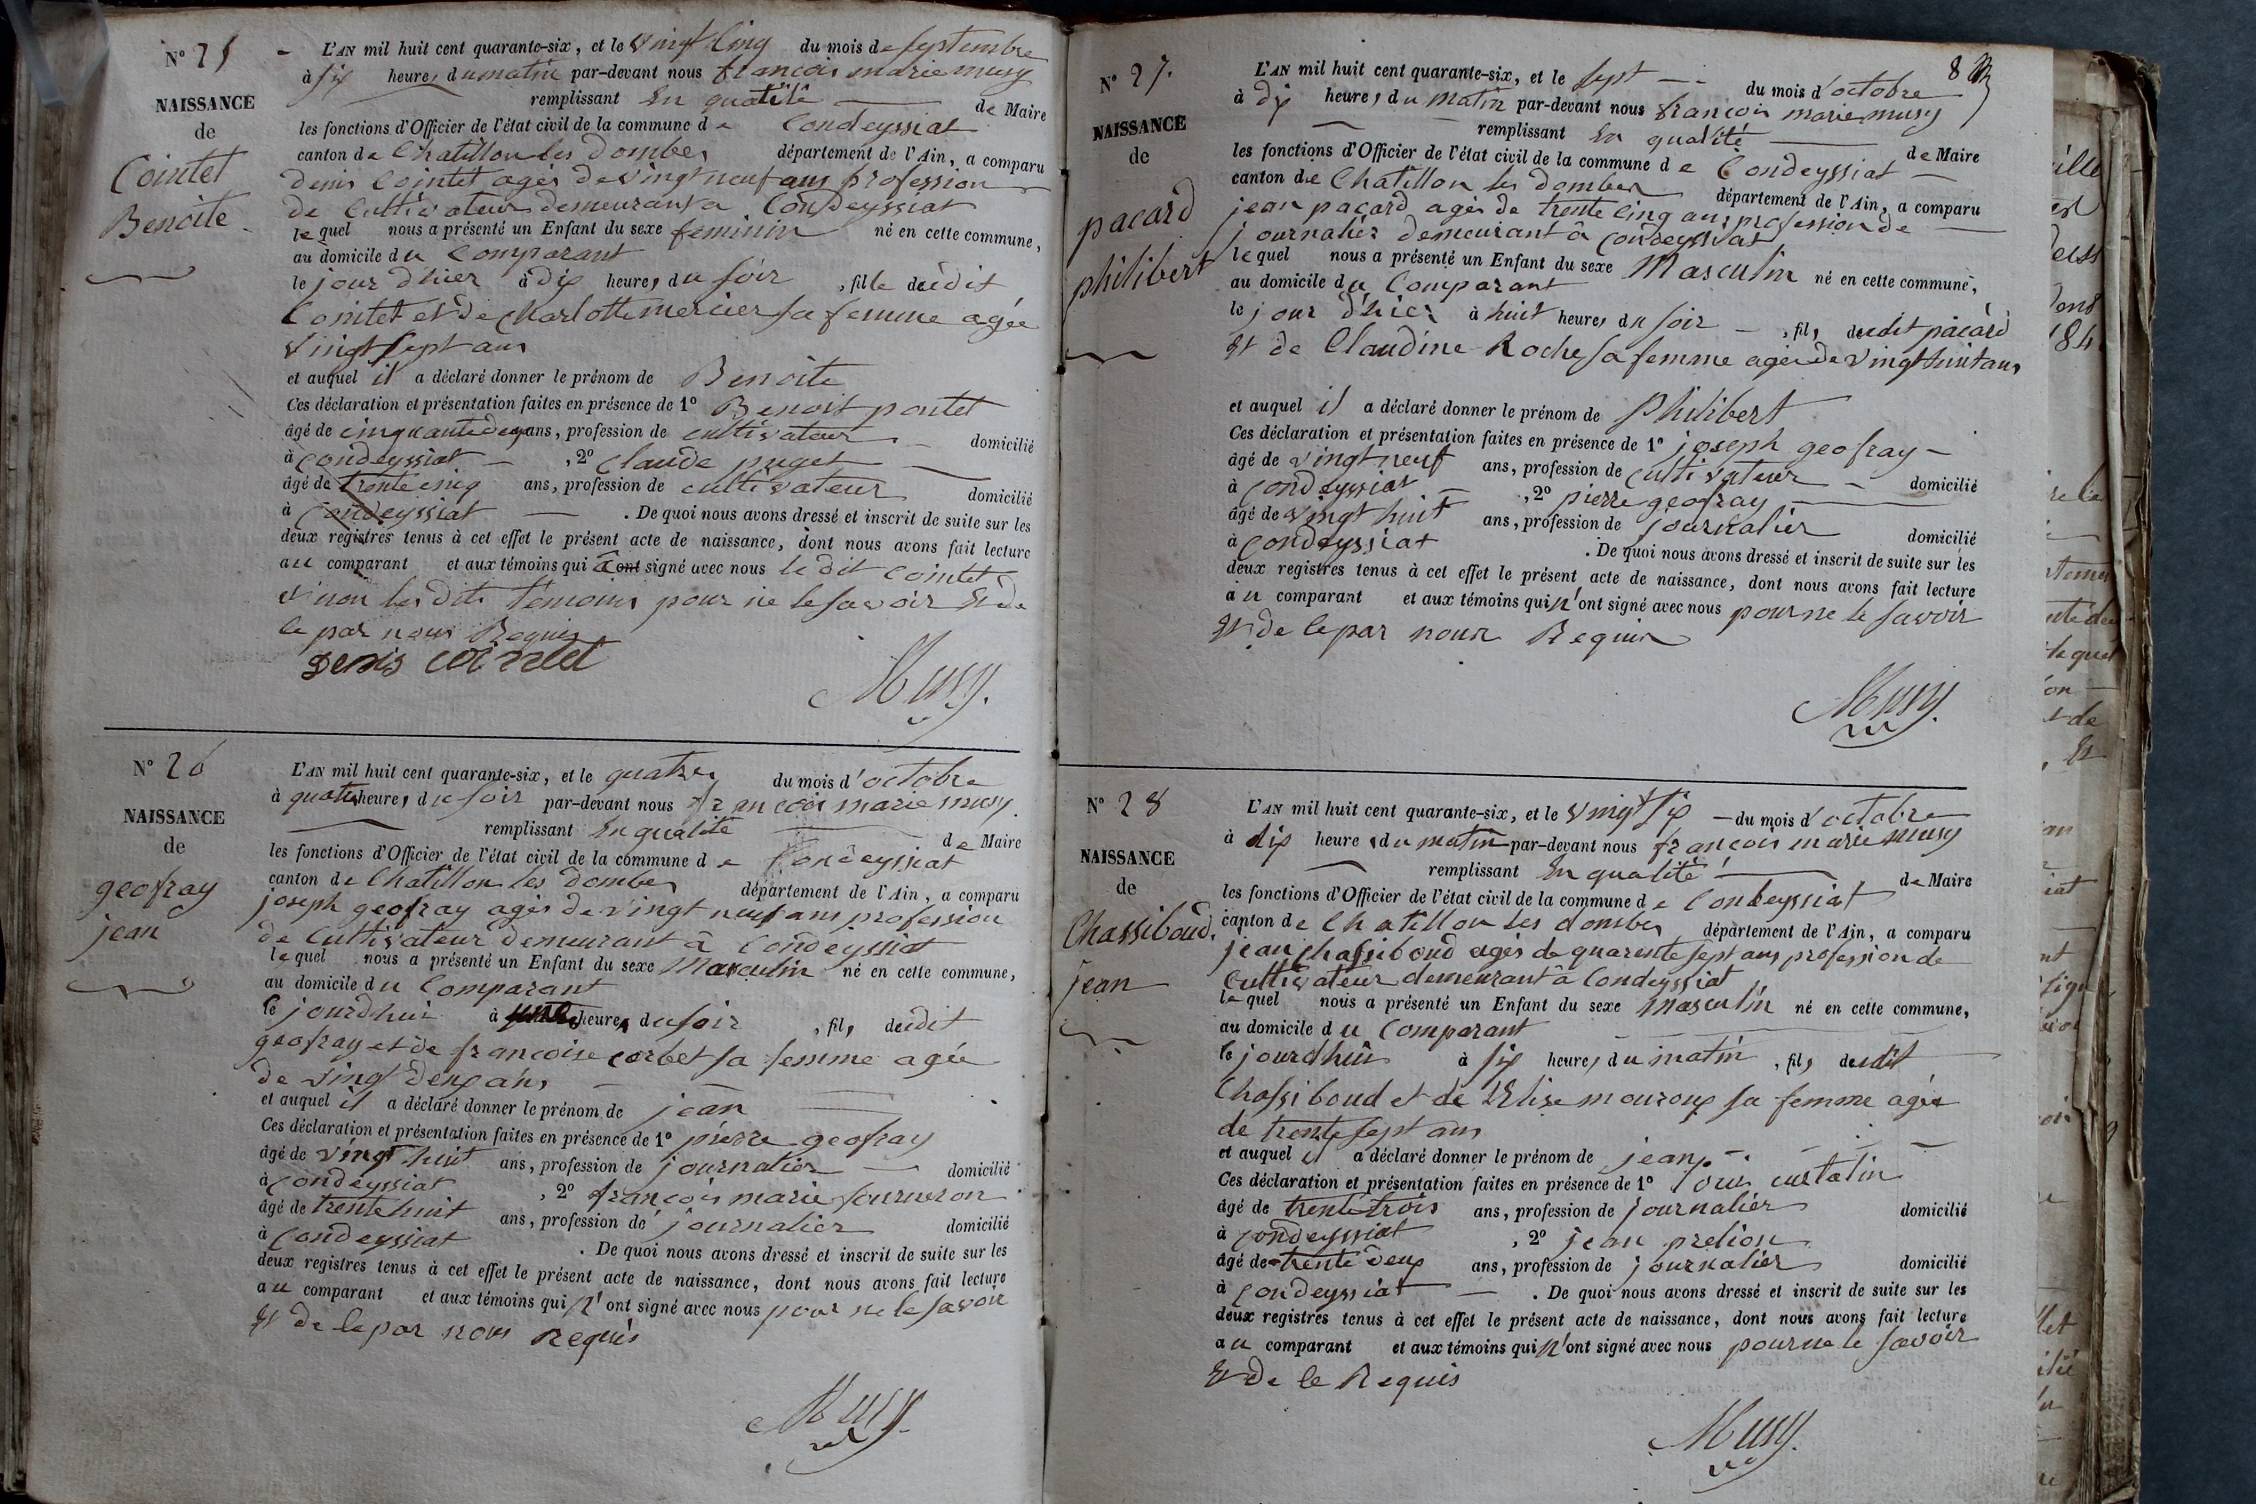 N° 25
NAISSANCE
de
Cointet
Benoite
L'AN mil huit cent quarante-six, et le vingt cinq du mois de septembre
à six heures du matin par-devant nous françois marie musy
remplissant En qualité de Maire
les fonctions d'Officier de l'état civil de la commune de Condeyssiat
canton de Chatillon les Dombes département de l'Ain, a comparu
Denis Cointet agés de vingt neuf ans profession
de Cultivateur demeurant a Condeyssiat
lequel nous a présenté un Enfant du sexe feminin né en cette commune,
au domicile du Comparant
le jour d'hier à dix heures du soir, fille dudit
Cointet et de Charlotte mercier sa femme agée
vingt sept ans
et auquel il a déclaré donner le prénom de Benoite
Ces déclaration et présentation faites en présence de 1° Benoit pontet
âgé de cinquante deux ans, profession de cultivateur domicilié
à condeyssiat, 2° claude puget
âgé de trente cinq ans, profession de cultivateur domicilié
à Condeyssiat. De quoi nous avons dressé et inscrit de suite sur les
deux registres tenus à cet effet le présent acte de naissance, dont nous avons fait lecture
au comparant et aux témoins qui a ont signé avec nous le dit cointet
et non les dits témoins pour ne le savoir Et de
le par nous Requis
Denis cointet
Musy
N° 26
NAISSANCE
de
geofray
jean
L'AN mil huit cent quarante-six, et le quatre du mois d'octobre
à quatre heures du soir par-devant nous françois marie musy
remplissant En qualité de Maire
les fonctions d'Officier de l'état civil de la commune de Condeyssiat
canton de Chatillon les Dombes département de l'Ain, a comparu
joseph geofray agés de vingt neuf ans profession
de Cultivateur demeurant à Condeyssiat
lequel nous a présenté un Enfant du sexe Masculin né en cette commune,
au domicile du Comparant
le jourd'hui à heures du soir, fils dudit
geofray et de françoise corbet sa femme agée
de vingt deux ans
et auquel il a déclaré donner le prénom de jean
Ces déclaration et présentation faites en présence de 1° pierre geofray
âgé de vingt huit ans, profession de journalier domicilié
à condeyssiat, 2° françois marie fourneron
âgé de trente huit ans, profession de journalier domicilié
à Condeyssiat. De quoi nous avons dressé et inscrit de suite sur les
deux registres tenus à cet effet le présent acte de naissance, dont nous avons fait lecture
au comparant et aux témoins qui n'ont signé avec nous pour ne le savoir
Et de le par nous Requis
Musy
8
N° 27.
NAISSANCE
de
pacard
philibert
L'AN mil huit cent quarante-six, et le sept du mois d'octobre
à dix heures du matin par-devant nous françois marie musy
remplissant En qualité de Maire
les fonctions d'Officier de l'état civil de la commune de Condeyssiat
canton de Chatillon les dombes département de l'Ain, a comparu
jean pacard agés de trente cinq ans profession de
journalier demeurant à condeyssiat
lequel nous a présenté un Enfant du sexe Masculin né en cette commune,
au domicile du Comparant
le jour d'hier à huit heures du soir, fils dudit pacard
Et de Claudine Roche sa femme agée de vingt huit ans
et auquel il a déclaré donner le prénom de Philibert
Ces déclaration et présentation faites en présence de 1° joseph geofray
âgé de vingt neuf ans, profession de cultivateur domicilié
à condeyssiat, 2° pierre geofray
âgé de vingt huit ans, profession de journalier domicilié
à condeyssiat. De quoi nous avons dressé et inscrit de suite sur les
deux registres tenus à cet effet le présent acte de naissance, dont nous avons fait lecture
au comparant et aux témoins qui n'ont signé avec nous pour ne le savoir
Et de le par nous Requis
Musy
N° 28
NAISSANCE
de
Chassiboud
jean
L'AN mil huit cent quarante-six, et le vingt six du mois d'octobre
à dix heures du matin par-devant nous françois marie musy
remplissant En qualité de Maire
les fonctions d'Officier de l'état civil de la commune de Condeyssiat
canton de Chatillon les dombes département de l'Ain, a comparu
jean chassiboud agés de quarente sept ans profession de
Cultivateur demeurant à Condeyssiat
lequel nous a présenté un Enfant du sexe masculin né en cette commune,
au domicile du Comparant
le jourd'hui à six heures du matin, fils dudit
Chassiboud et de Elise mouroux sa femme agée
de trente sept ans
et auquel il a déclaré donner le prénom de jean
Ces déclaration et présentation faites en présence de 1° Louis curtatin
âgé de trente trois ans, profession de journalier domicilié
à condeyssiat, 2° jean prelion
âgé de trente deux ans, profession de journalier domicilié
à condeyssiat. De quoi nous avons dressé et inscrit de suite sur les
deux registres tenus à cet effet le présent acte de naissance, dont nous avons fait lecture
au comparant et aux témoins qui n'ont signé avec nous pour ne le savoir
Et de le Requis
Musy